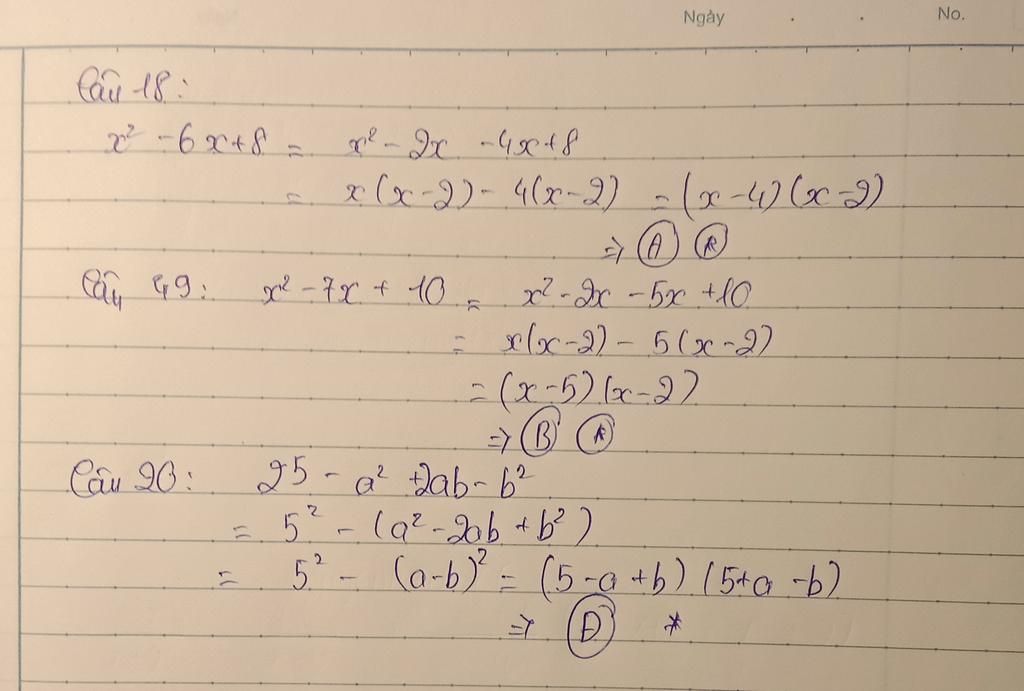 Ngày . . No.
Câu 18:
x² - 6x + 8 = x² - 2x - 4x + 8
= x(x - 2) - 4(x - 2) = (x - 4)(x - 2)
=> A *
Câu 49: x² - 7x + 10 = x² - 2x - 5x + 10
= x(x - 2) - 5(x - 2)
= (x - 5)(x - 2)
=> B *
Câu 20: 25 - a² + 2ab - b²
= 5² - (a² - 2ab + b²)
= 5² - (a - b)² = (5 - a + b)(5 + a - b)
=> D *